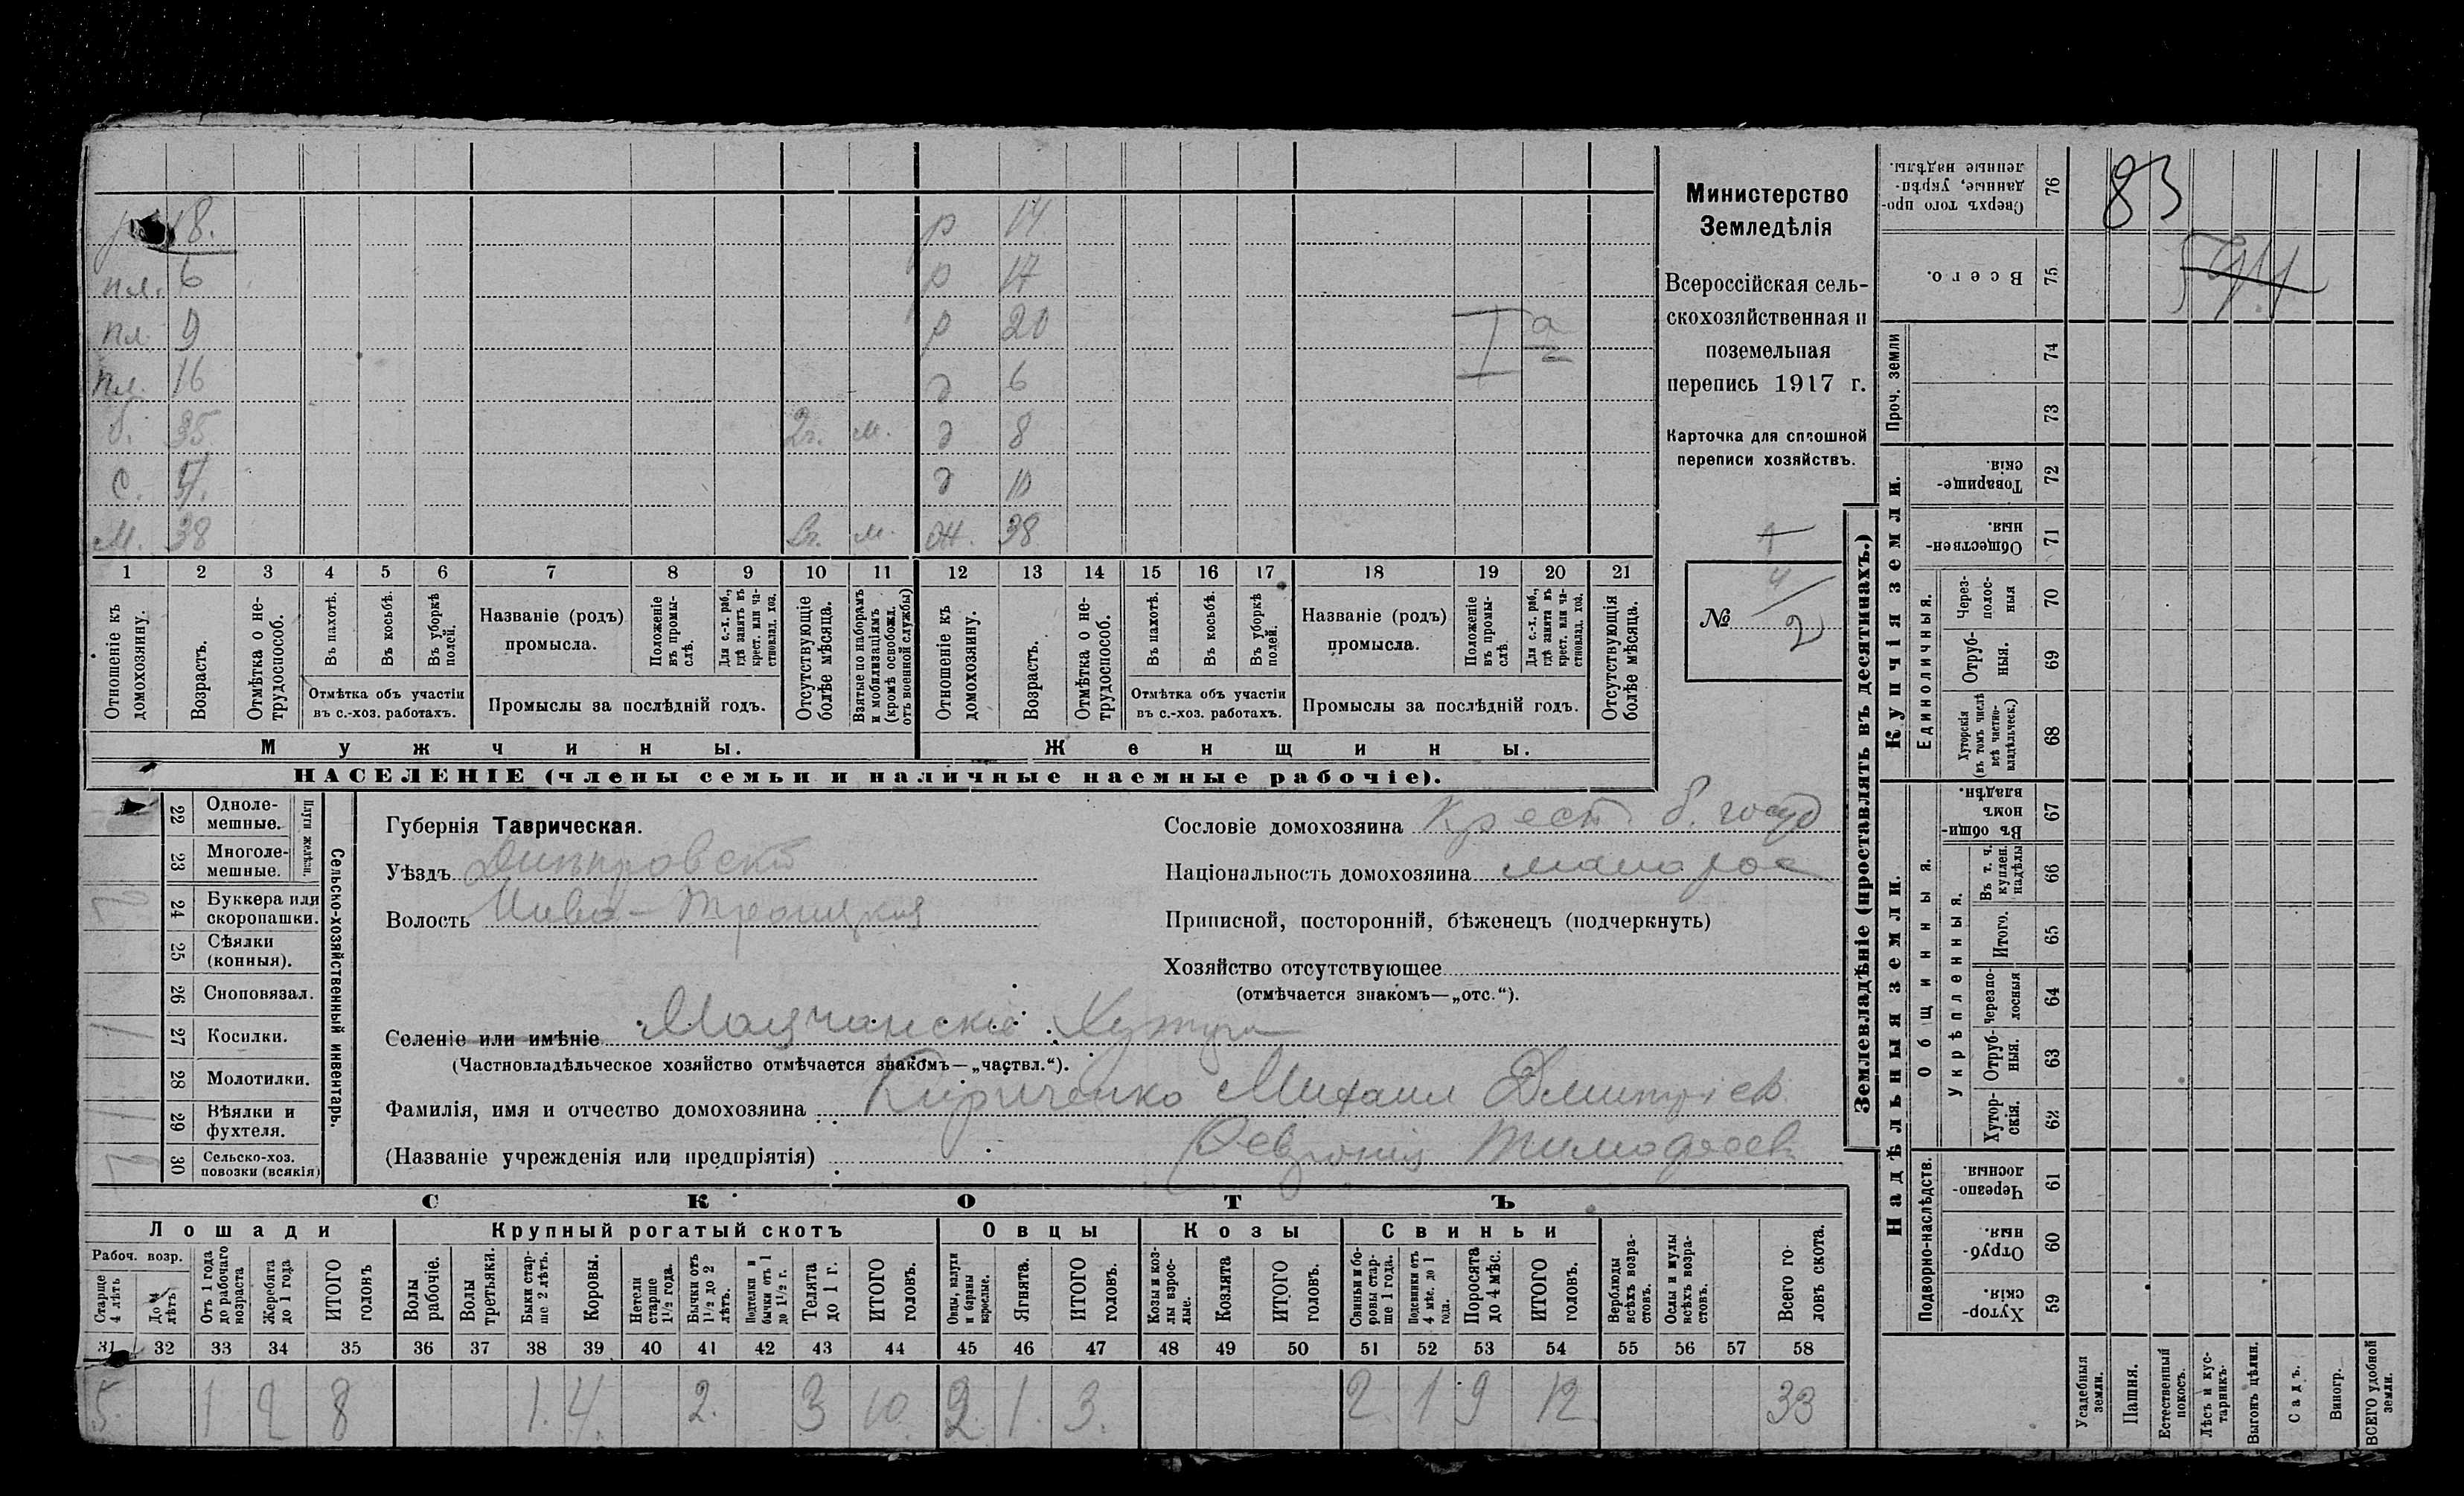 р 18. р 14
пл. 6 р 17
пл. 9 р 20 I а 2
пл. 16 д 6
б. 35 2г. м. д 8
с. 4. д 10
м. 38 2г. м. ж. 38
1 2 3 4 5 6 7 8 9 10 11 12 13 14 15 16 17 18 19 20 21
Отношеніе къ домохозяину.
Возрастъ.
Отмѣтка о нетрудоспособ.
Въ пахотѣ.
Въ косьбѣ.
Въ уборкѣ полей.
Отмѣтка объ участіи въ с.-хоз. работахъ.
Названіе (родъ) промысла.
Положеніе въ промыслѣ.
Для с.-х. раб., гдѣ занятъ въ крест. или частновлад. хоз.
Промыслы за послѣдній годъ.
Отсутствующіе болѣе мѣсяца.
Взятые по наборамъ и мобилизаціямъ (кромѣ освобожд. отъ военной службы)
Отношеніе къ домохозяину.
Возрастъ.
Отмѣтка о нетрудоспособ.
Въ пахотѣ.
Въ косьбѣ.
Въ уборкѣ полей.
Отмѣтка объ участіи въ с.-хоз. работахъ.
Названіе (родъ) промысла.
Положеніе въ промыслѣ.
Для с.-х. раб., гдѣ занята въ крест. или частновлад. хоз.
Промыслы за послѣдній годъ.
Отсутствующія болѣе мѣсяца.
Мужчины. Женщины.
НАСЕЛЕНІЕ (члены семьи и наличные наемные рабочіе).
Министерство
Земледѣлія
Всероссійская сель-
скохозяйственная и
поземельная
перепись 1917 г.
Карточка для сплошной
переписи хозяйствъ.
№ 4/2
22 Одноле-мешные.
23 Многоле-мешные.
Плуги желѣзн.
24 Буккера или скоропашки. 2
25 Сѣялки (конныя).
26 Сноповязал.
27 Косилки. 1
28 Молотилки.
29 Вѣялки и фухтеля. 1
30 Сельско-хоз. повозки (всякія) 2
Сельско-хозяйственный инвентарь.
Губернія Таврическая.
Уѣздъ Днѣпровскій
Волость Ново-Троицкая
Сословіе домохозяина Крест. б. госуд
Національность домохозяина малорос
Приписной, посторонній, бѣженецъ (подчеркнуть)
Хозяйство отсутствующее
(отмѣчается знакомъ—„отс.“).
Селеніе или имѣніе Хутора
(Частновладѣльческое хозяйство отмѣчается знакомъ—„частвл.“).
Фамилія, имя и отчество домохозяина Кириченко Михаил Дмитріев.
(Названіе учрежденія или предпріятія) Февронія Тимофеев
СКОТЪ
Лошади Крупный рогатый скотъ Овцы Козы Свиньи
Рабоч. возр.
Старше 4 лѣтъ
До 4 лѣтъ
Отъ 1 года до рабочаго возраста
Жеребята до 1 года
ИТОГО головъ
Волы рабочіе.
Волы третьяки.
Быки старше 2 лѣтъ.
Коровы.
Нетели старше 1 1/2 года.
Бычки отъ 1 1/2 до 2 лѣтъ.
Подтелки и бычки отъ 1 до 1 1/2 г.
Телята до 1 г.
ИТОГО головъ.
Овцы, валухи и бараны взрослые.
Ягнята.
ИТОГО головъ.
Козы и козлы взрослые.
Козлята
ИТОГО головъ.
Свиньи и боровы старше 1 года.
Подсвинки отъ 4 мѣс. до 1 года.
Поросята до 4 мѣс.
ИТОГО головъ.
Верблюды всѣхъ возрастовъ.
Ослы и мулы всѣхъ возрастовъ.
Всего головъ скота.
31 32 33 34 35 36 37 38 39 40 41 42 43 44 45 46 47 48 49 50 51 52 53 54 55 56 57 58
5. 1 2 8 1. 4. 2. 3 10. 2. 1. 3. 2 1 9 12. 33
Землевладѣніе (проставлять въ десятинахъ.)
Купчія земли.
Надѣльныя земли.
76 Сверхъ того проданные, укрѣпленные надѣлы. 83
75 Всего.
Проч. земли
74
73
72 Товарищескія.
71 Общественныя.
Единоличныя.
70 Черезполосныя
69 Отрубныя.
68 Хуторскія (въ томъ числѣ всѣ частновладѣльческ.)
Общинныя.
67 Въ общинномъ владѣн.
Укрѣпленныя.
66 Въ т. ч. куплен. надѣлы
65 Итого.
64 Черезполосныя
63 Отрубныя.
62 Хуторскія.
Подворно-наслѣдств.
61 Черезполосныя.
60 Отрубныя.
59 Хуторскія.
Усадебныя земли.
Пашня.
Естественный покосъ.
Лѣсъ и кустарникъ.
Выгонъ цѣлин.
Садъ.
Виногр.
ВСЕГО удобной земли.